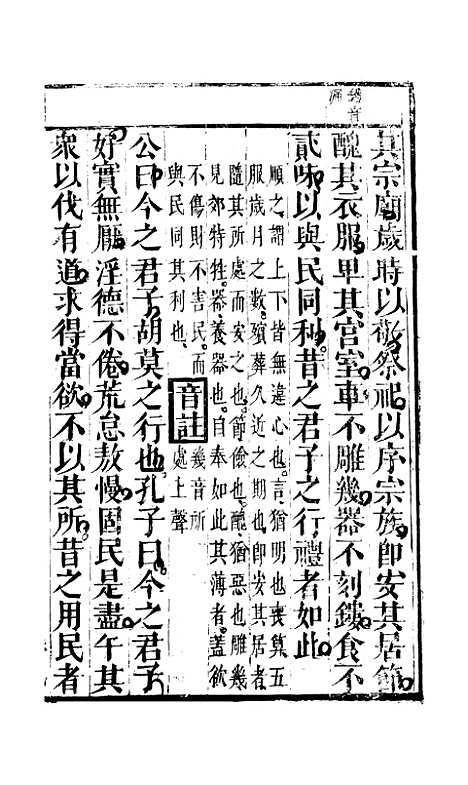 鏤音
漏
其宗廟歲時以敬祭祀以序宗族即安其居節
醜其衣服卑其宮室車不雕幾器不刻鏤食不
貳味以與民同利昔之君子之行禮者如此
順之謂上下皆無違心也言猶明也喪算五
服歲月之數殯葬久近之期也即安其居者
隨其所處而安之也節儉也醜猶惡也雕幾
見郊特牲器養器也自奉如此其薄者蓋欲
不傷財不害民而
與民同其利也
音註
幾音所
處上聲
公曰今之君子胡莫之行也孔子曰今之君子
好實無厭淫德不倦荒怠敖慢固民是盡午其
衆以伐有道求得當欲不以其所昔之用民者